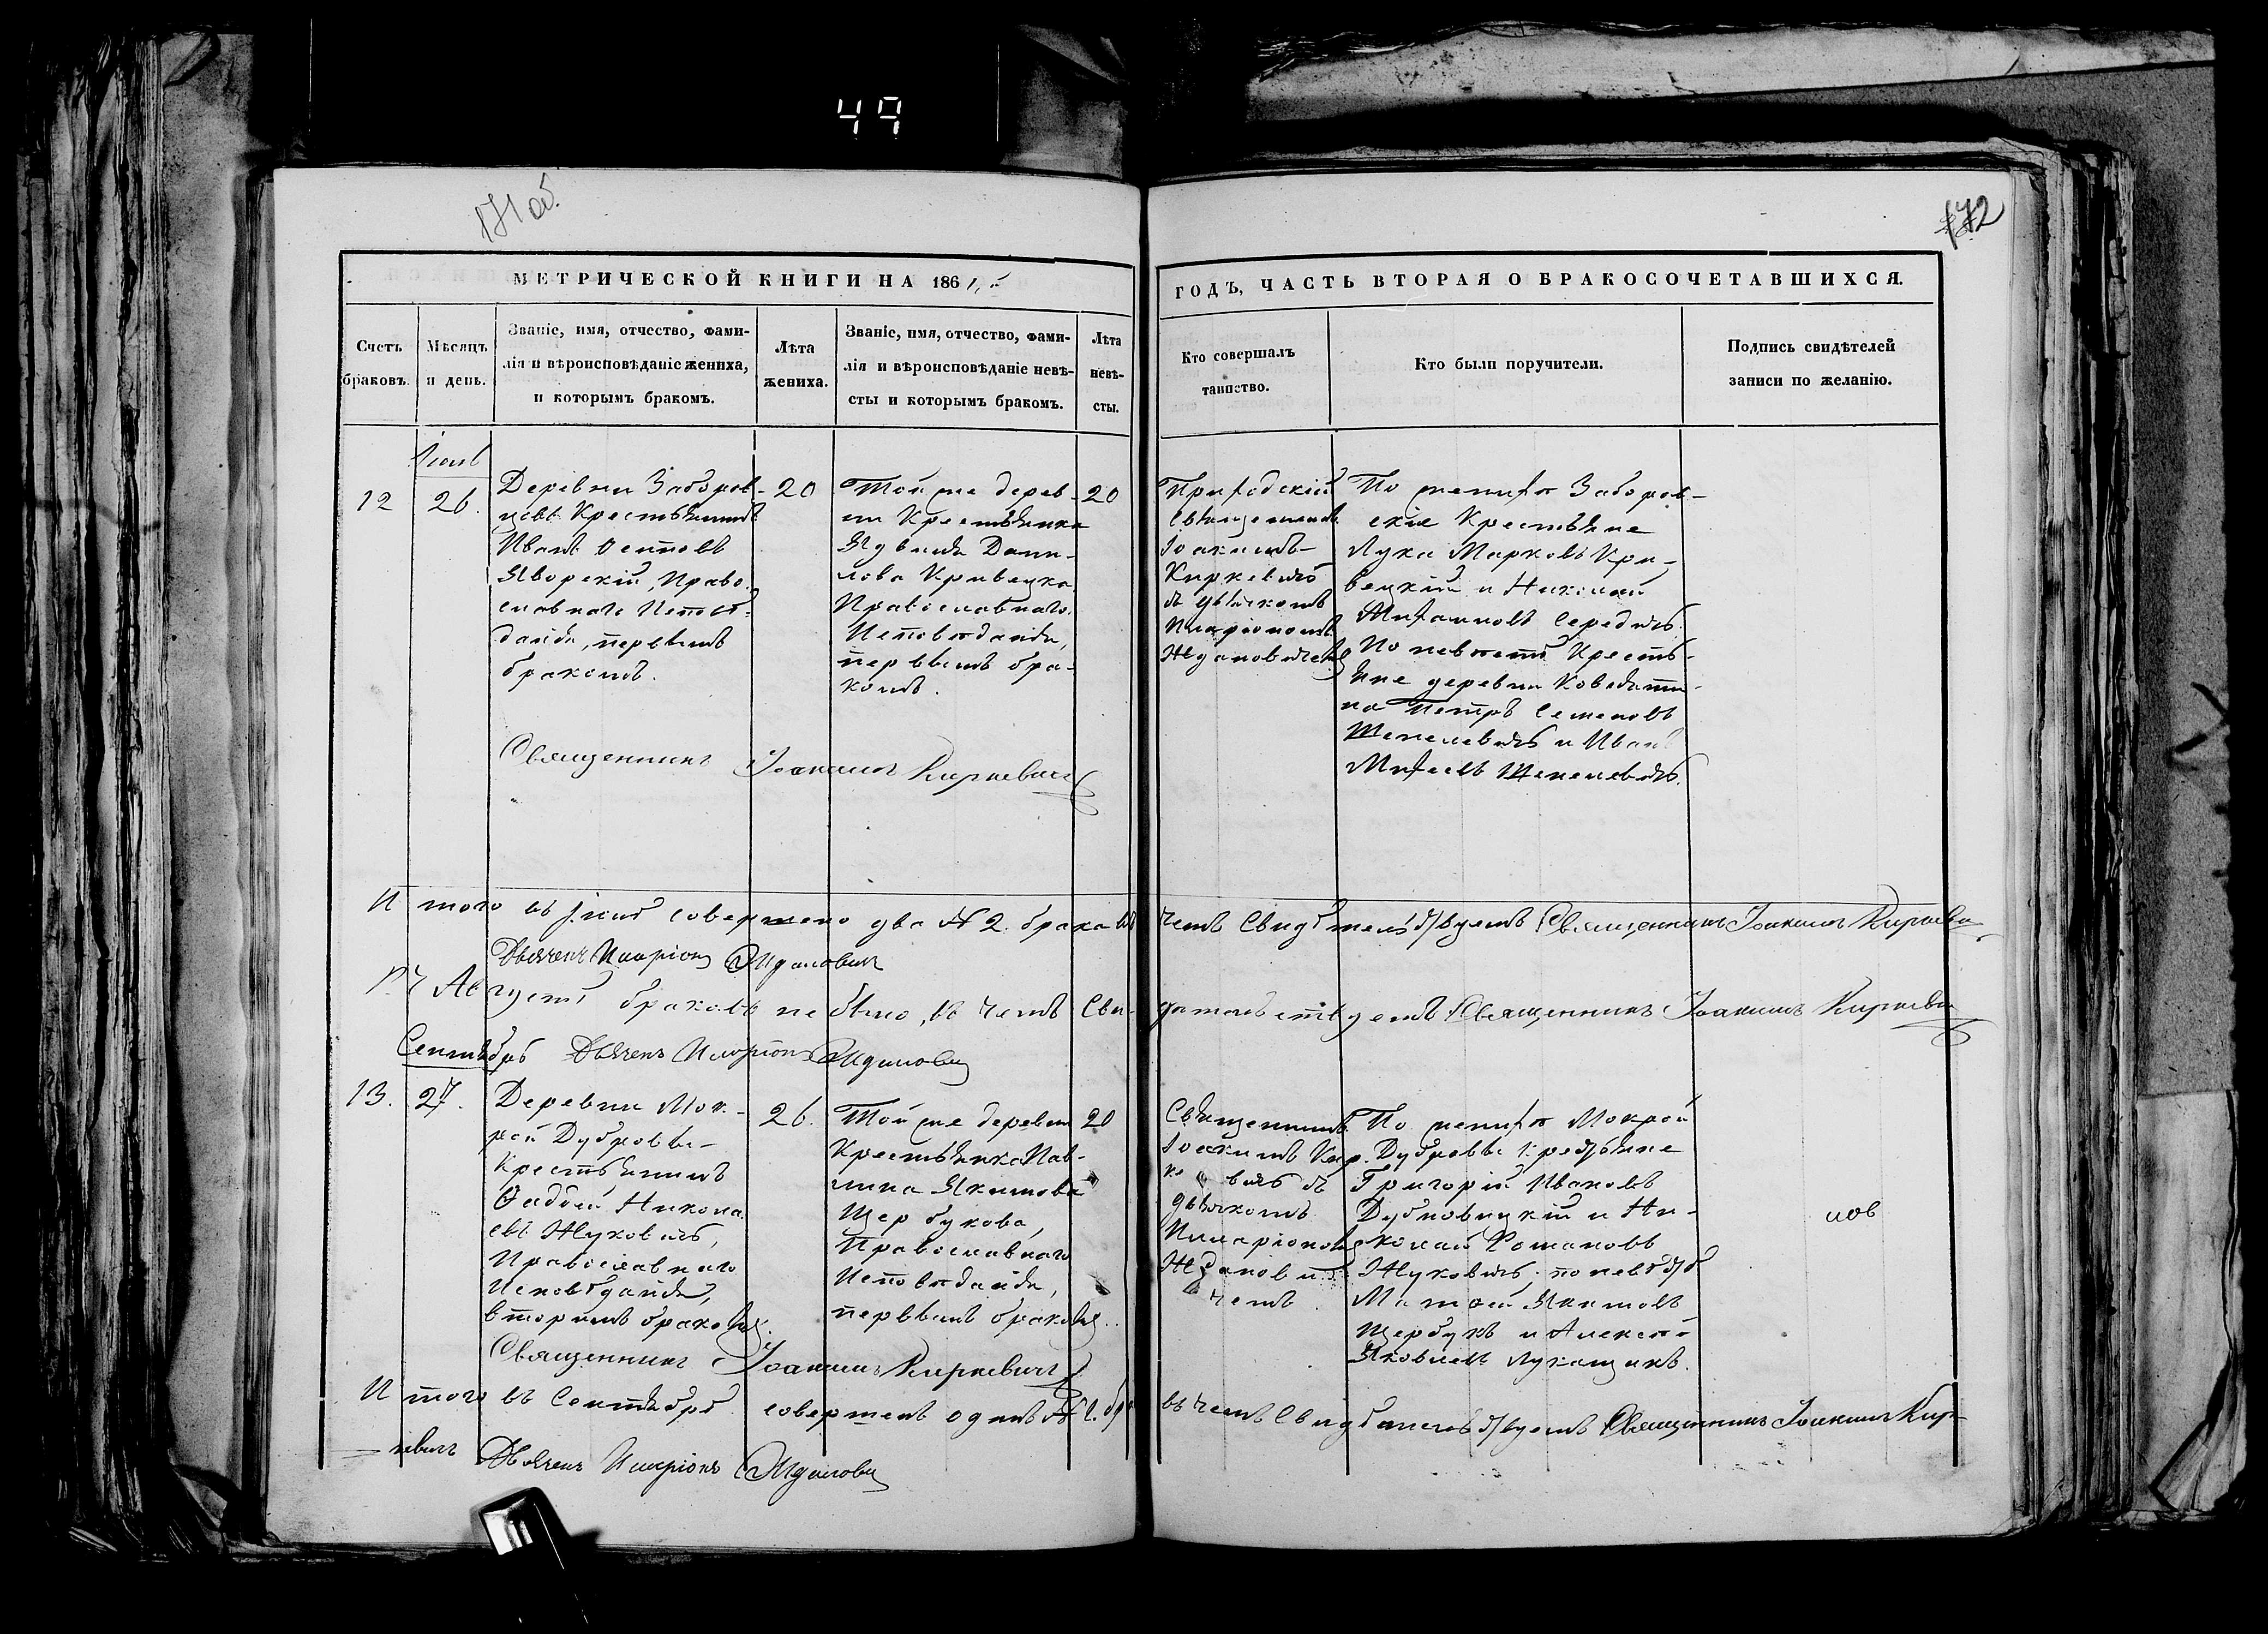 49
171 об.
172
МЕТРИЧЕСКОЙ КНИГИ НА 186
ГОДЪ, ЧАСТЬ ВТОРАЯ О БРАКОСОЧЕТАВШИХСЯ.
Счетъ
браковъ.
Мѣсяцъ
и день.
Званіе, имя, отчество, фами-
лія и вѣроисповѣданіе жениха,
и которымъ бракомъ.
Лѣта
жениха.
Званіе, имя, отчество, фами-
лія и вѣроисповѣданіе невѣ-
сты и которымъ бракомъ.
Лѣта
невѣ-
сты.
Кто совершалъ
таинство.
Кто были поручители.
Подпись свидѣтелей
записи по желанію.
12
26.
Деревни Заборов-
Крестьянинъ
Иванъ Осиповъ
Яворскій, Право-
славнаго Исповѣ-
данія, первымъ
бракомъ.
20
Той же дерев-
ни Крестьянка
Данн-
лова Кривецка
Православнаго
Исповѣданія,
первымъ бра-
комъ.
20
Приходскій
Священникъ
Іоакимъ
Киркевичъ
съ дьячкомъ
Иларіономъ
Ждановичемъ
По женихѣ Заборов-
скіе Крестьяне
Лука Марковъ Кри-
вецкій и Николай
Середичъ.
По невѣстѣ Кресть-
яне деревни
на Петръ Семеновъ
Шепелевичъ и Иванъ
Шепелевичъ.
Священникъ Іоакимъ Киркевичъ
Итого въ совершено два № 2. брака въ чемъ Свидѣтельствуемъ Священникъ Іоакимъ Киркевичъ
Дьячекъ Иларіонъ Ждановичъ
Въ Августѣ браковъ не было, въ чемъ Сви-дѣтельствуемъ Священникъ Іоакимъ Киркевичъ
Сентябрь Дьячекъ Иларіонъ Ждановичъ
13.
27.
Деревни Мок-
рой Дубровы
Крестьянинъ
Ѳадѣй Никола-
евъ Жуковичъ,
Православнаго
Исповѣданія,
вторымъ бракомъ.
26.
Той же деревни
Крестьянка Пав-
лина Якимова
Щербукова,
Православнаго
Исповѣданія,
первымъ бракомъ.
20
Священникъ
Іоакимъ Кир-
кевичъ съ
дьячкомъ
Иларіономъ
Жданови-
чемъ.
По женихѣ Мокрой
Дубровы Крестьяне
Григорій Ивановъ
Дубновицкій и Ни-
колай Романовъ
Жуковичъ. по невѣстѣ
Якимовъ
Щербукъ и Алексѣй
Яковлевъ Лукащикъ.
Священникъ Іоакимъ Киркевичъ
Итого въ Сентябрѣ совершенъ одинъ № 1. бра въ чемъ Свидѣтельствуемъ Священникъ Іоакимъ Кир-
кевичъ Дьячекъ Иларіонъ Ждановичъ